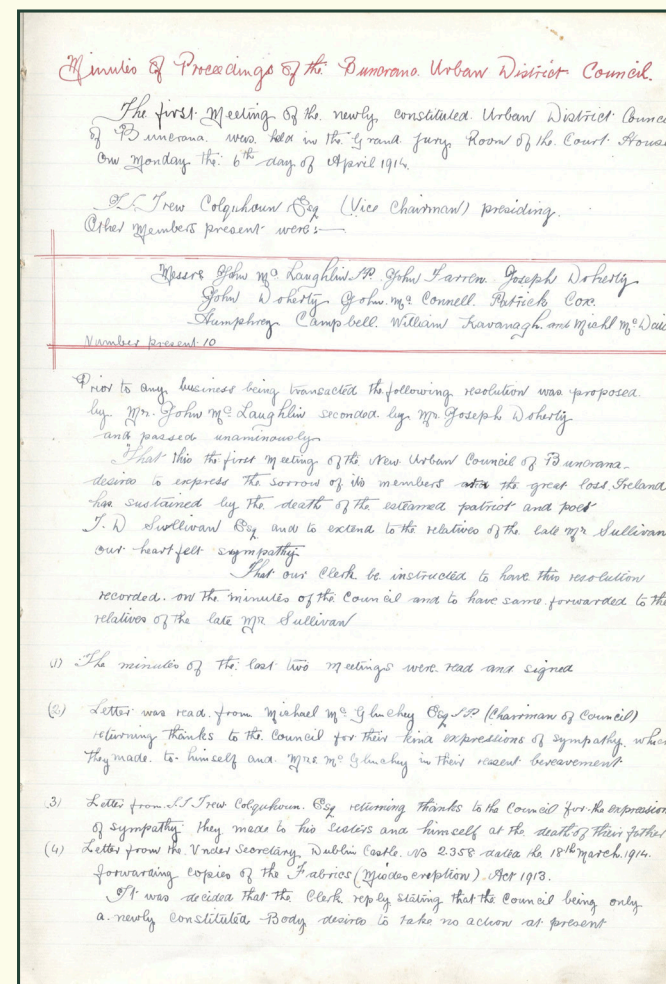 Minutes of Proceedings of the Buncrana Urban District Council.
The first Meeting of the newly constituted Urban District Counc
of Buncrana was held in the Grand Jury Room of the Court House
on Monday the 6th day of April 1914.
Trew Colquhoun Esq (Vice Chairman) presiding.
Other Members present were:-
Messrs John Mc Laughlin J.P. John Farren Joseph Doherty
John Doherty John Mc Connell Patrick Cox.
Humphrey Campbell. William Kavanagh and Michl Mc Daid
Number present 10
Prior to any business being transacted the following resolution was proposed
by Mr. John Mc Laughlin seconded by Mr Joseph Doherty
and passed unaminously
That this the first Meeting of the New Urban Council of Buncrana
desires to express the sorrow of its members the great loss Ireland
has sustained by the death of the esteamed patriot and poet
T. D Sullivan Esq and to extend to the relatives of the late Mr Sullivan
our heartfelt sympathy
That our Clerk be instructed to have this resolution
recorded on the minutes of the Council and to have same forwarded to the
relatives of the late Mr Sullivan
(1) The minutes of the last two meetings were read and signed
(2) Letter was read from Michael Mc Glinchey Esq J.P (Chairman of Council)
returning thanks to the Council for their kind expressions of sympathy which
they made to himself and Mrs Mc Glinchey in their resent bereavement
(3) Letter from Trew Colquhoun Esq returning thanks to the Council for the expression
of sympathy they made to his sisters and himself at the death of their father
(4) Letter from the Under Secretary, Dublin Castle. No 2358 dated the 18th March. 1914.
forwarding copies of the Fabrics (Misdescreption) Act 1913.
It was decided that the Clerk reply stating that the Council being only
a newly constituted Body desires to take no action at present